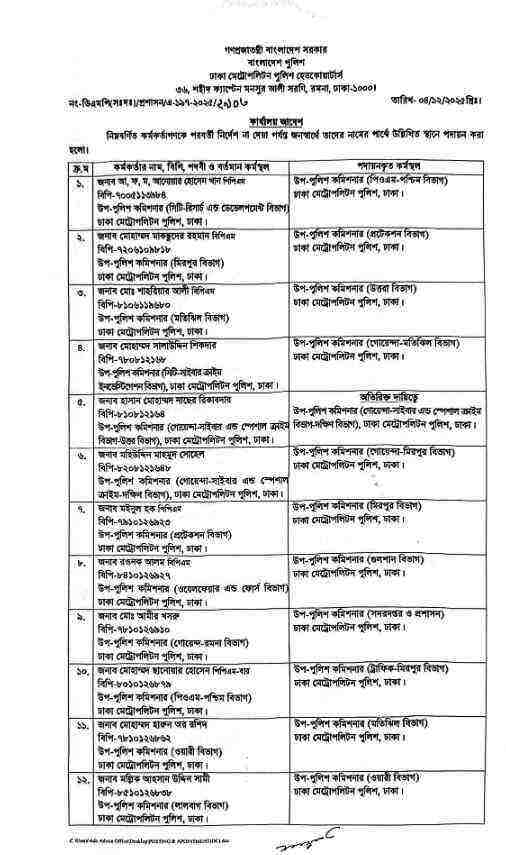 গণপ্রজাতন্ত্রী বাংলাদেশ সরকার
বাংলাদেশ পুলিশ
ঢাকা মেট্রোপলিটন পুলিশ হেডকোয়ার্টার্স
৩৬, শহীদ ক্যাপ্টেন মনসুর আলী সরণি, রমনা, ঢাকা-১০০০।
নং-ডিএমপি(সঃদঃ)/প্রশাসন/এ-১৯৭-২০২৫/
তারিখ- ০৪/১২/২০২৫খ্রিঃ।
কার্যালয় আদেশ
নিম্নবর্ণিত কর্মকর্তাগণকে পরবর্তী নির্দেশ না দেয়া পর্যন্ত জনস্বার্থে তাদের নামের পার্শ্বে উল্লিখিত স্থানে পদায়ন করা
হলো।
ক্র.ম কর্মকর্তার নাম, বিপি, পদবী ও বর্তমান কর্মস্থল পদায়নকৃত কর্মস্থল
১. জনাব আ, ফ, ম, আনোয়ার হোসেন খান পিপিএম
বিপি-৭০০৫১১৩৯৮৪
উপ-পুলিশ কমিশনার (সিটি-রিসার্চ এন্ড ডেভেলপমেন্ট বিভাগ)
ঢাকা মেট্রোপলিটন পুলিশ, ঢাকা।
উপ-পুলিশ কমিশনার (পিওএম-পশ্চিম বিভাগ)
ঢাকা মেট্রোপলিটন পুলিশ, ঢাকা।
২. জনাব মোহাম্মদ মাকছুদের রহমান বিপিএম
বিপি-৭২০৬১০৯৮১৮
উপ-পুলিশ কমিশনার (মিরপুর বিভাগ)
ঢাকা মেট্রোপলিটন পুলিশ, ঢাকা।
উপ-পুলিশ কমিশনার (প্রটেকশন বিভাগ)
ঢাকা মেট্রোপলিটন পুলিশ, ঢাকা।
৩. জনাব মোঃ শাহরিয়ার আলী বিপিএম
বিপি-৮১০৬১১৯৬৮০
উপ-পুলিশ কমিশনার (মতিঝিল বিভাগ)
ঢাকা মেট্রোপলিটন পুলিশ, ঢাকা।
উপ-পুলিশ কমিশনার (উত্তরা বিভাগ)
ঢাকা মেট্রোপলিটন পুলিশ, ঢাকা।
৪. জনাব মোহাম্মদ সালাউদ্দিন শিকদার
বিপি-৭৮০৮১২১৬৮
উপ-পুলিশ কমিশনার (সিটি-সাইবার ক্রাইম
ইনভেস্টিগেশন বিভাগ), ঢাকা মেট্রোপলিটন পুলিশ, ঢাকা।
উপ-পুলিশ কমিশনার (গোয়েন্দা-মতিঝিল বিভাগ)
ঢাকা মেট্রোপলিটন পুলিশ, ঢাকা।
৫. জনাব হাসান মোহাম্মদ নাছের রিকাবদার
বিপি-৮১০৮১২১৬৪
উপ-পুলিশ কমিশনার (গোয়েন্দা-সাইবার এন্ড স্পেশাল ক্রাইম
বিভাগ-উত্তর বিভাগ), ঢাকা মেট্রোপলিটন পুলিশ, ঢাকা।
অতিরিক্ত দায়িত্বে
উপ-পুলিশ কমিশনার (গোয়েন্দা-সাইবার এন্ড স্পেশাল ক্রাইম
বিভাগ-দক্ষিণ বিভাগ), ঢাকা মেট্রোপলিটন পুলিশ, ঢাকা।
৬. জনাব মহিউদ্দিন মাহমুদ সোহেল
বিপি-৮২০৮১২১৬৪৮
উপ-পুলিশ কমিশনার (গোয়েন্দা-সাইবার এন্ড স্পেশাল
ক্রাইম-দক্ষিণ বিভাগ), ঢাকা মেট্রোপলিটন পুলিশ, ঢাকা।
উপ-পুলিশ কমিশনার (গোয়েন্দা-মিরপুর বিভাগ)
ঢাকা মেট্রোপলিটন পুলিশ, ঢাকা।
৭. জনাব মইনুল হক পিপিএম
বিপি-৭৯১০১২৬৯২৩
উপ-পুলিশ কমিশনার (প্রটেকশন বিভাগ)
ঢাকা মেট্রোপলিটন পুলিশ, ঢাকা।
উপ-পুলিশ কমিশনার (মিরপুর বিভাগ)
ঢাকা মেট্রোপলিটন পুলিশ, ঢাকা।
৮. জনাব রওনক আলম বিপিএম
বিপি-৮৪১০১২৬৯২৭
উপ-পুলিশ কমিশনার (ওয়েলফেয়ার এন্ড ফোর্স বিভাগ)
ঢাকা মেট্রোপলিটন পুলিশ, ঢাকা।
উপ-পুলিশ কমিশনার (গুলশান বিভাগ)
ঢাকা মেট্রোপলিটন পুলিশ, ঢাকা।
৯. জনাব মোঃ আমীর খসরু
বিপি-৭৮১০১২৬৯১০
উপ-পুলিশ কমিশনার (গোয়েন্দ-রমনা বিভাগ)
ঢাকা মেট্রোপলিটন পুলিশ, ঢাকা।
উপ-পুলিশ কমিশনার (সদরদপ্তর ও প্রশাসন)
ঢাকা মেট্রোপলিটন পুলিশ, ঢাকা।
১০. জনাব মোহাম্মদ ছানোয়ার হোসেন পিপিএম-বার
বিপি-৮০১০১২৬৮৭৯
উপ-পুলিশ কমিশনার (পিওএম-পশ্চিম বিভাগ)
ঢাকা মেট্রোপলিটন পুলিশ, ঢাকা।
উপ-পুলিশ কমিশনার (ট্রাফিক-মিরপুর বিভাগ)
ঢাকা মেট্রোপলিটন পুলিশ, ঢাকা।
১১. জনাব মোহাম্মদ হারুন অর রশিদ
বিপি-৭৮১০১২৬৮৬২
উপ-পুলিশ কমিশনার (ওয়ারী বিভাগ)
ঢাকা মেট্রোপলিটন পুলিশ, ঢাকা।
উপ-পুলিশ কমিশনার (মতিঝিল বিভাগ)
ঢাকা মেট্রোপলিটন পুলিশ, ঢাকা।
১২. জনাব মল্লিক আহসান উদ্দিন সামী
বিপি-৮৫১০১২৬৮৩৮
উপ-পুলিশ কমিশনার (লালবাগ বিভাগ)
ঢাকা মেট্রোপলিটন পুলিশ, ঢাকা।
উপ-পুলিশ কমিশনার (ওয়ারী বিভাগ)
ঢাকা মেট্রোপলিটন পুলিশ, ঢাকা।